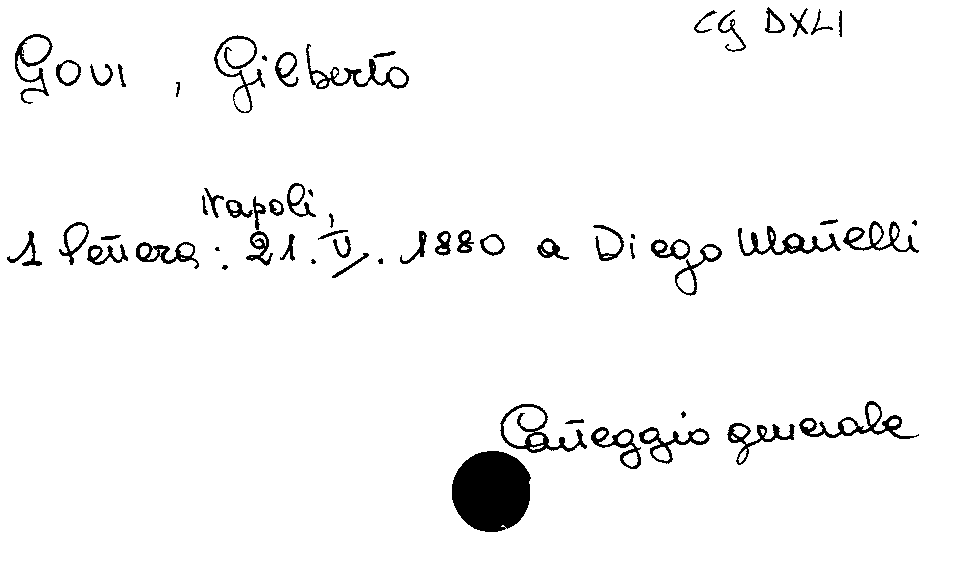 CG DXLI
Govi, Gilberto
Napoli,
1 lettera: 21. V. 1880 a Diego Martelli
Carteggio generale